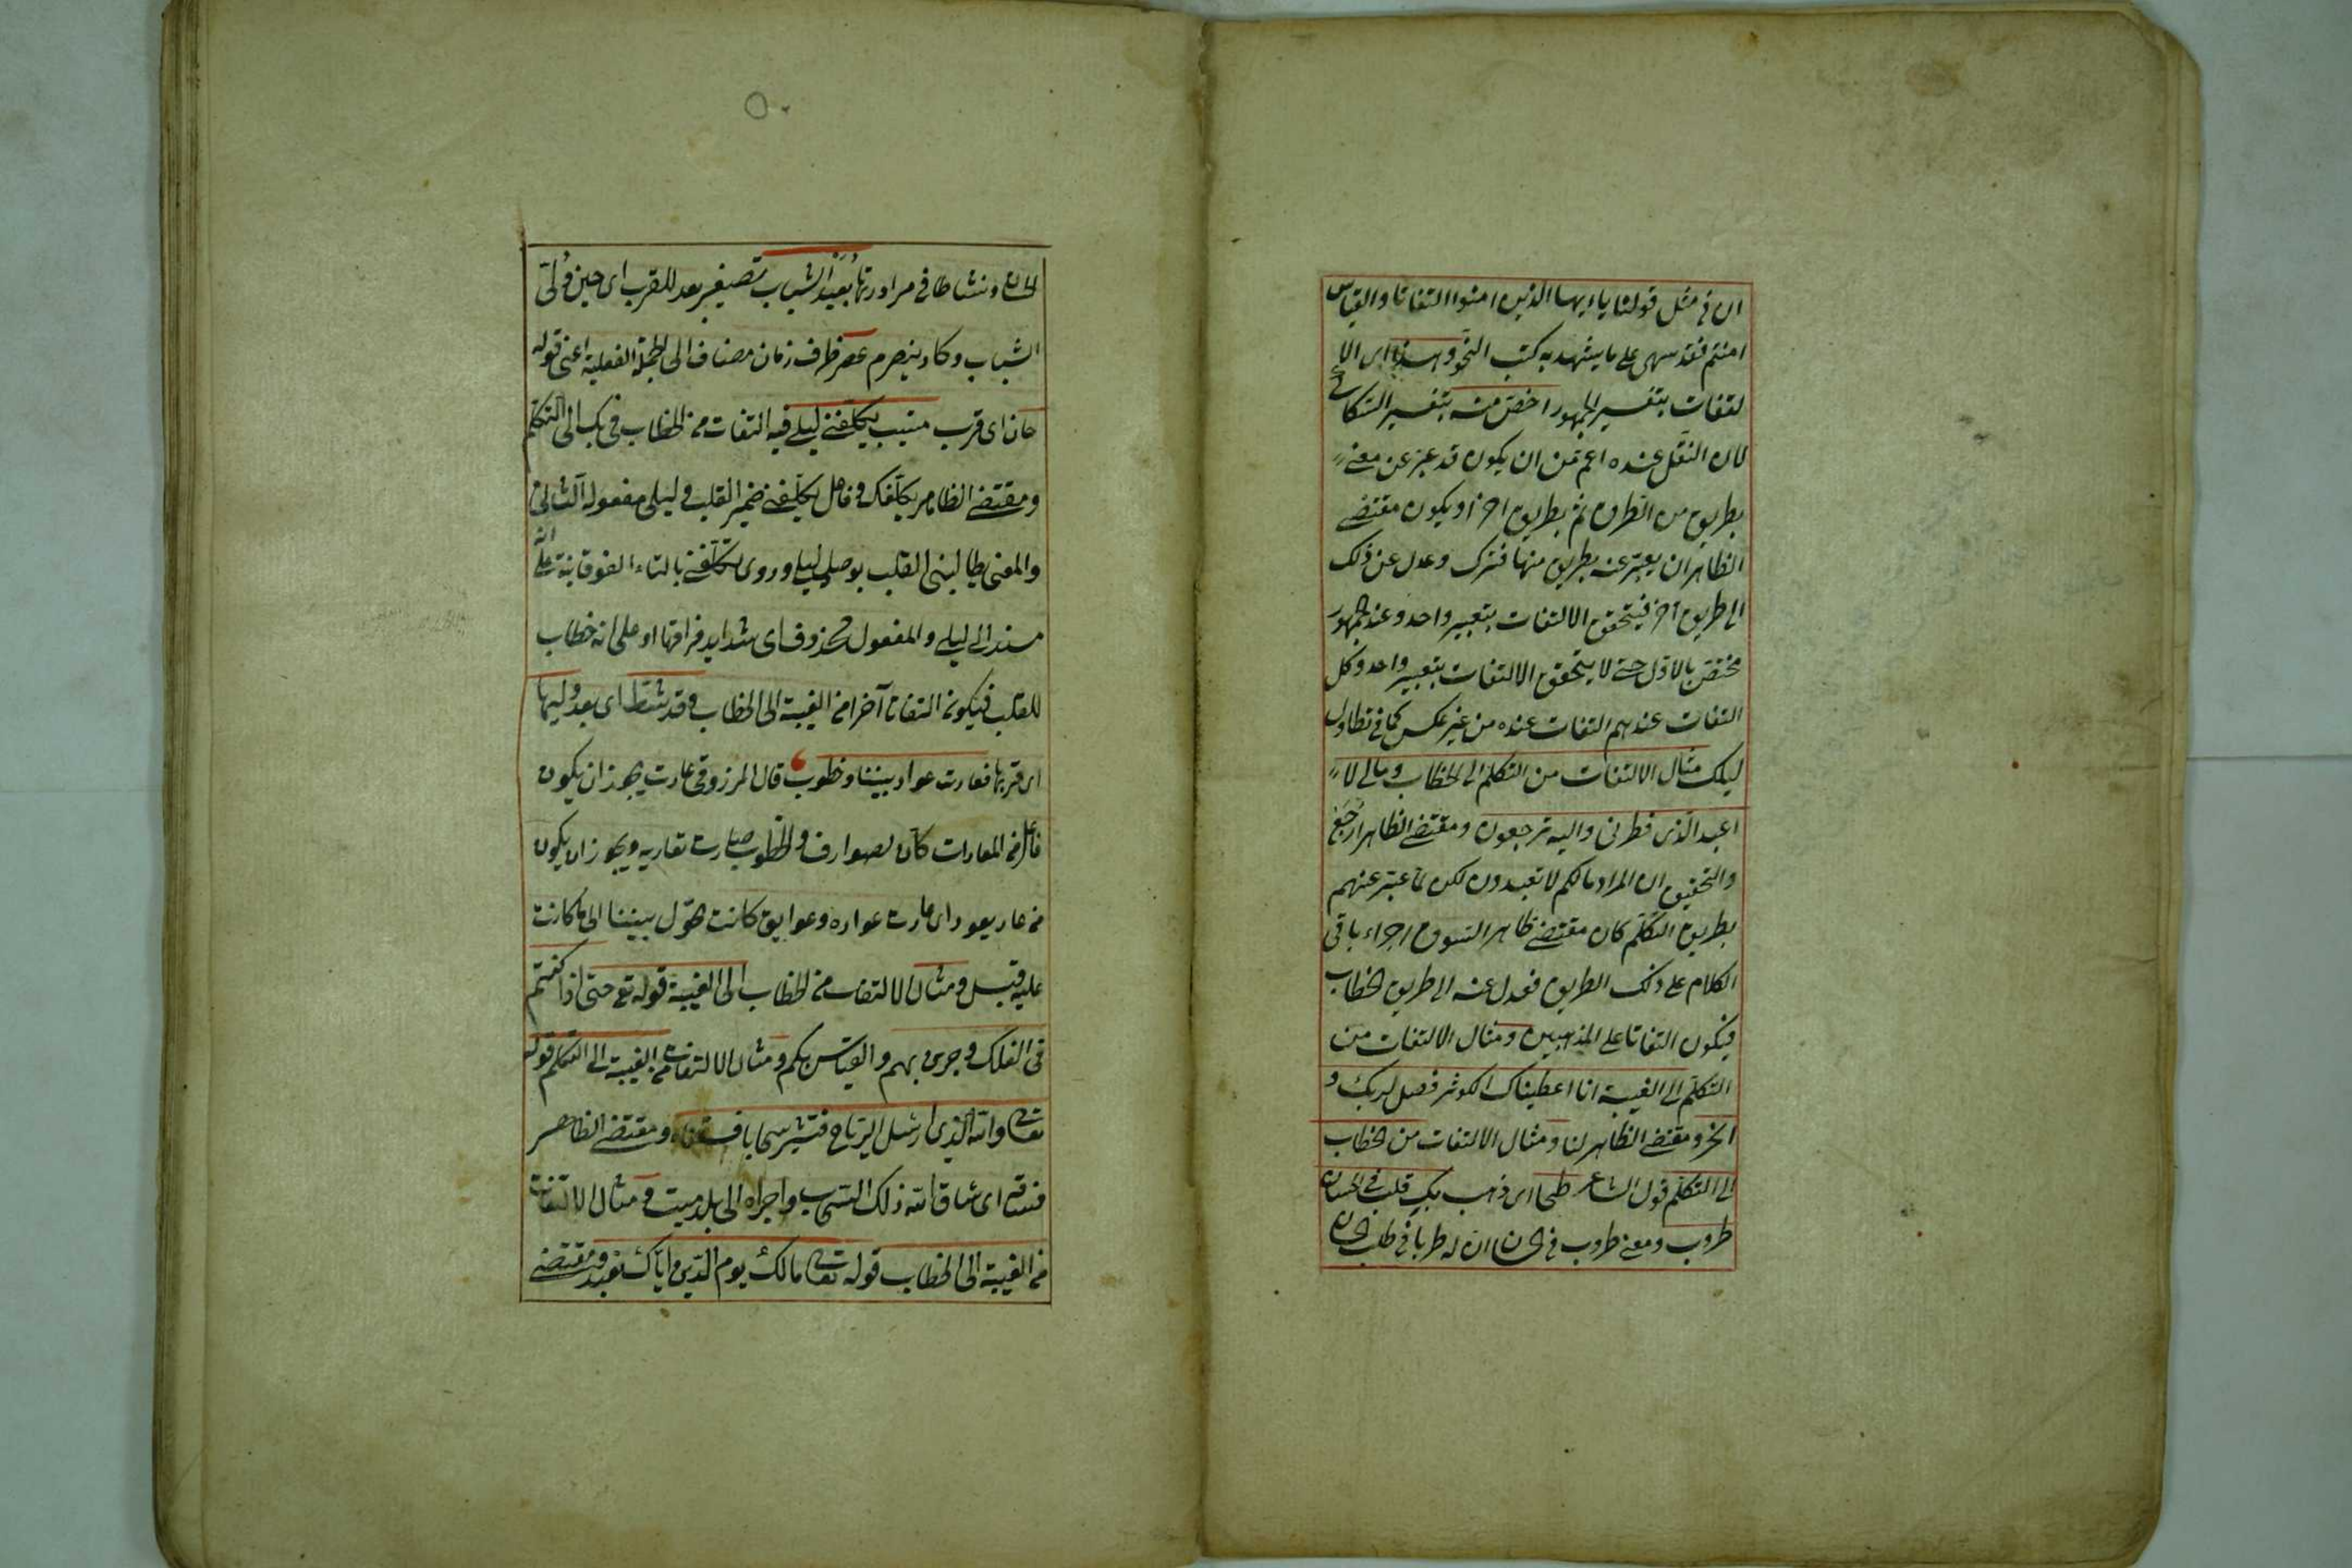 ان في مثل قولنا يا ايها الذين امنوا التفاتا والقياس
امنتم فقد سهى على ما يشهد به كتب النحو وهذا اى الا
لتفات بتفسير الجمهور اخص منه بتفسير السكاكي
لان النقل عنده اعم من ان يكون قد عبر عن معنى
بطريق من الطرق ثم بطريق اخر او يكون مقتضى
الظاهر ان يعبر عنه بطريق منها فترك وعدل عن ذلك
الى طريق آخر فيتحقق الالتفات بتعبير واحد وعند الجمهور
مختص بالاول حتى لا يتحقق الالتفات بتعبير واحد وكل
التفات عندهم التفات عنده من غير عكس كما في تطاول
ليلك مثال الالتفات من التكلم الى الخطاب ومالى لا
اعبد الذى فطرنى واليه ترجعون ومقتضى الظاهر ارجع
والتحقيق ان المراد مالكم لا تعبدون لكن لما عبر عنهم
بطريق التكلم كان مقتضى ظاهر السوق اجراء باقى
الكلام على ذلك الطريق فعدل عنه الى طريق الخطاب
فيكون التفاتا على المذهبين ومثال الالتفات من
التكلم الى الغيبة انا اعطيناك الكوثر فصل لربك و
انحر ومقتضى الظاهر لنا ومثال الالتفات من الخطاب
الى التكلم قول الشاعر طحا اى ذهب بك قلب في الحسان
طروب ومعنى طروب في الحسان ان له طربا في طلب الحسان
٥٠
الحسان ونشاطا في مراودتها بعيد الشباب تصغير بعد للقرب اى حين ولى
الشباب وكاد ينصرم عصر ظرف زمان مضاف الى الجملة الفعلية اعنى قوله
حان اى قرب مشيب يكلفنى ليلى فيه التفات من الخطاب في بك الى التكلم
ومقتضى الظاهر يكلفك وفاعل يكلفنى ضمير القلب وليلى مفعوله الثانى
والمعنى يطالبنى القلب بوصل ليلى وروى تكلفنى بالتاء الفوقانية على انه
مسند الى ليلى والمفعول محذوف اى شدايد فراقها او على انه خطاب
للقلب فيكون التفاتا آخر من الغيبة الى الخطاب وقد شط اى بعد وليها
اى قربها فعادت عواد بيننا وخطوب قال المرزوقى عادت يجوز ان يكون
فاعلت من المعادات كان الصوارف والخطوب صارت تعاديه ويجوز ان يكون
من عاد يعود اى عادت عواده وعوايق كانت تحول بيننا الى ما كانت
عليه قبل ومثال الالتفات من الخطاب الى الغيبة قوله تع حتى اذا كنتم
فى الفلك وجرين بهم والقياس بكم ومثال الالتفات من الغيبة الى التكلم قوله
تعالى والله الذى ارسل الرياح فتثير سحابا فسقناه ومقتضى الظاهر
فساقه اى ساق الله ذلك السحاب واجراه الى بلد ميت ومثال الالتفات
من الغيبة الى الخطاب قوله تعالى مالك يوم الدين اياك نعبد ومقتضى